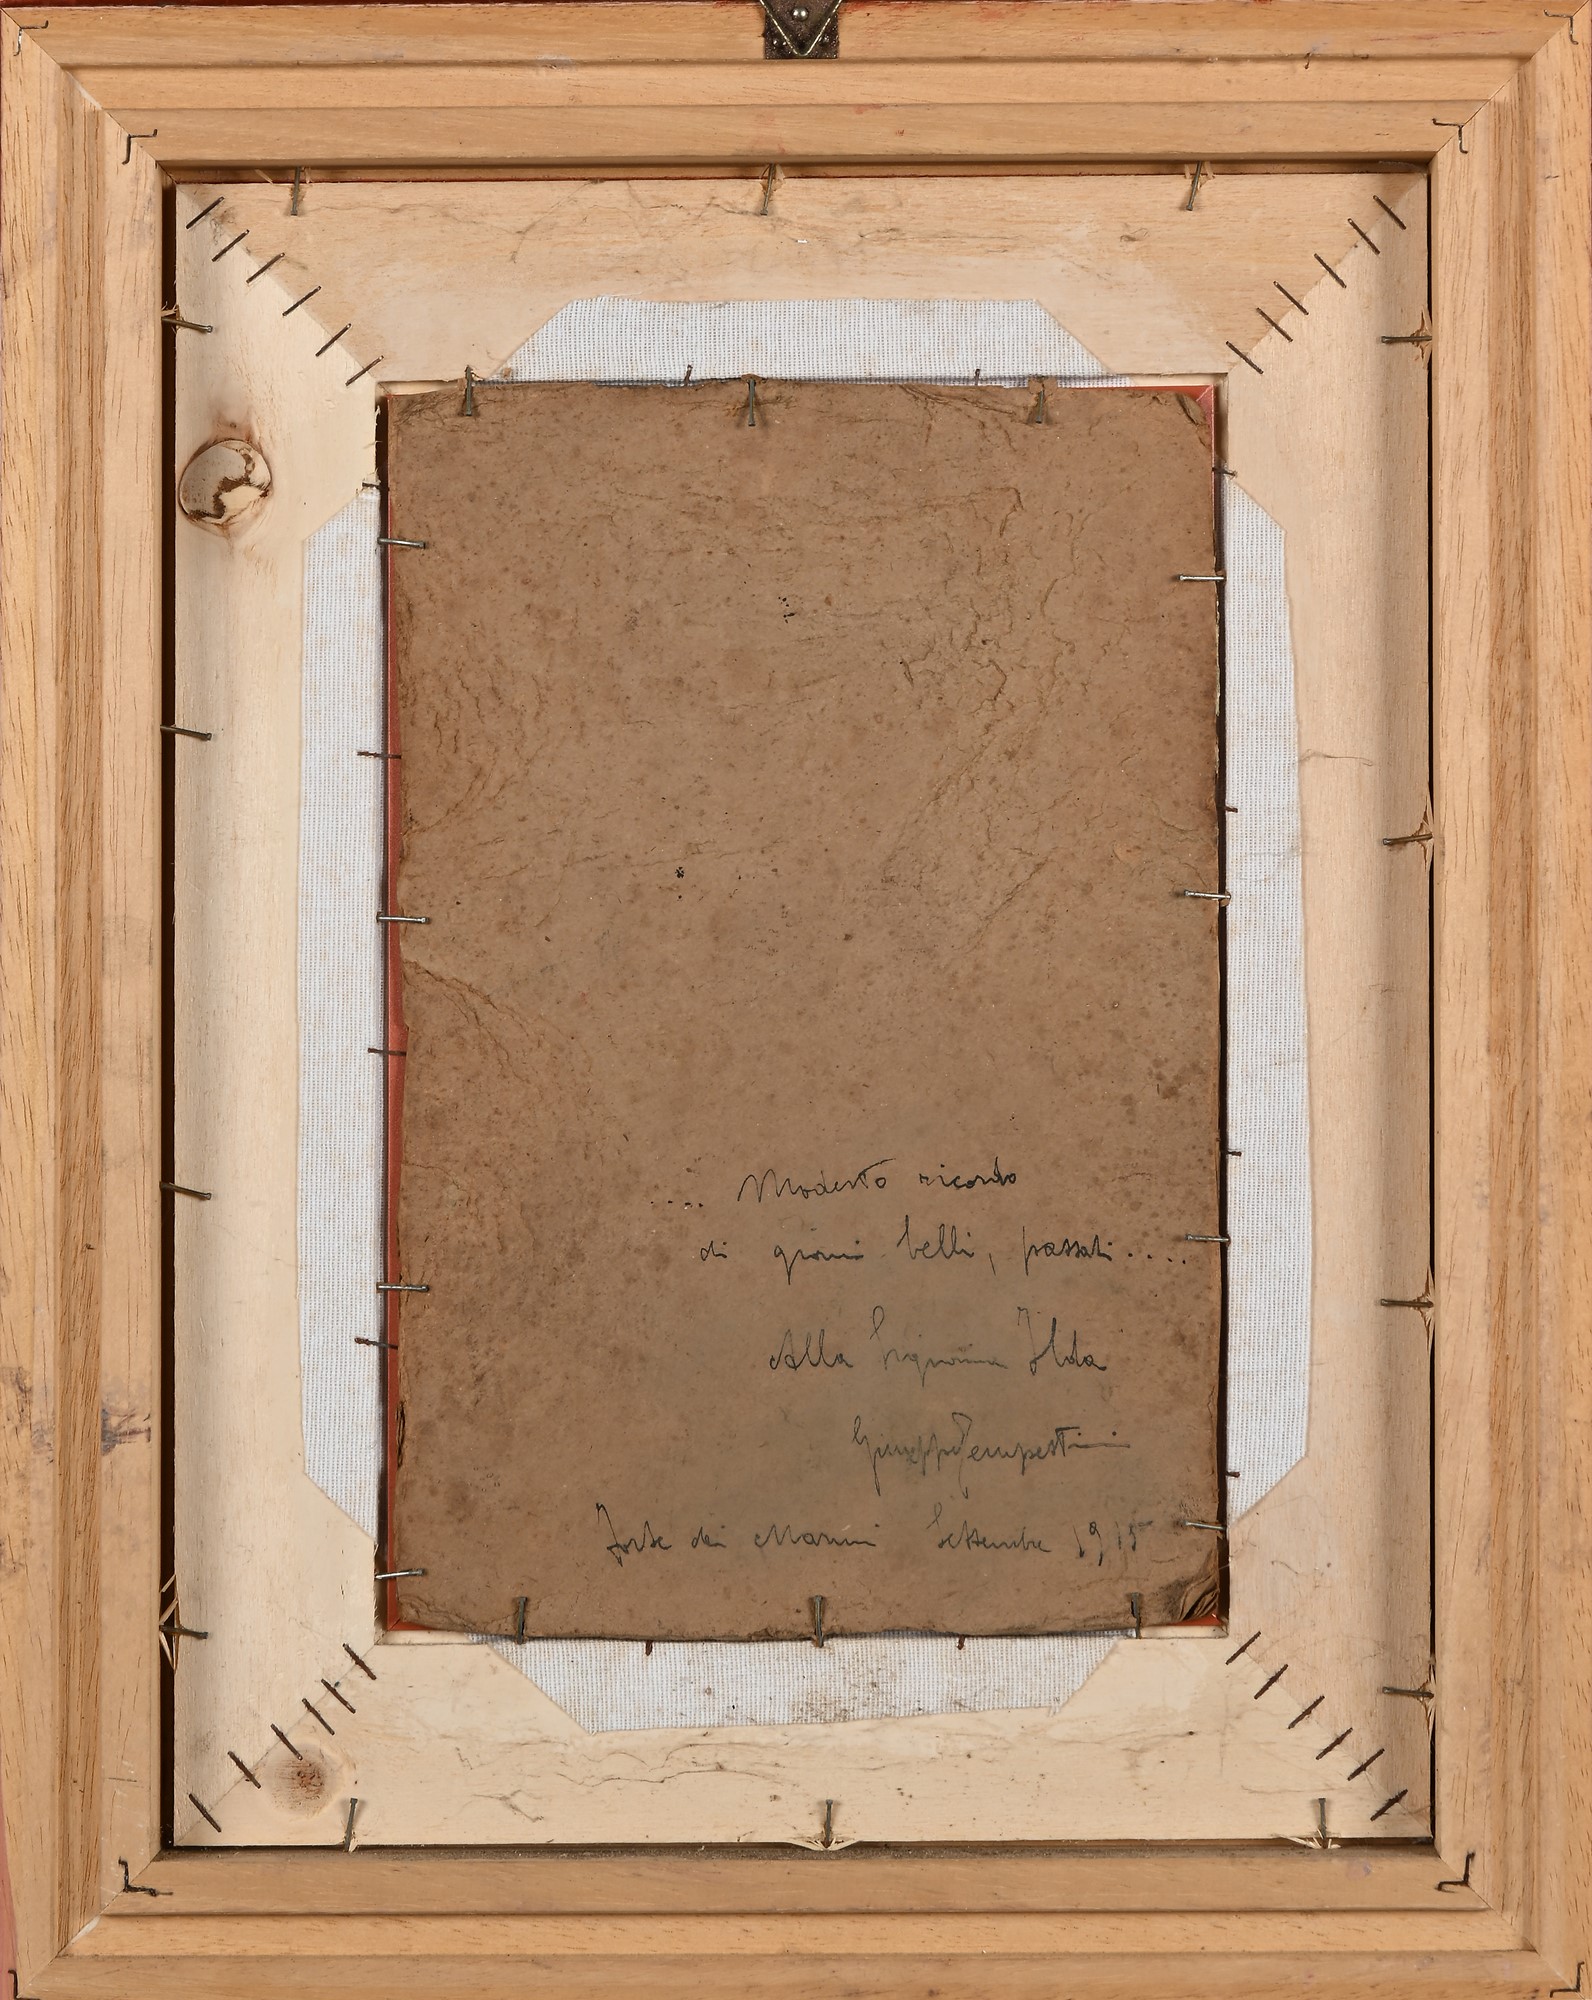 .... Modesto ricordo
di giorni belli, passati ....
Alla Signorina Ilda
Giuseppe Tempestini
Forte dei Marmi Settembre 1915